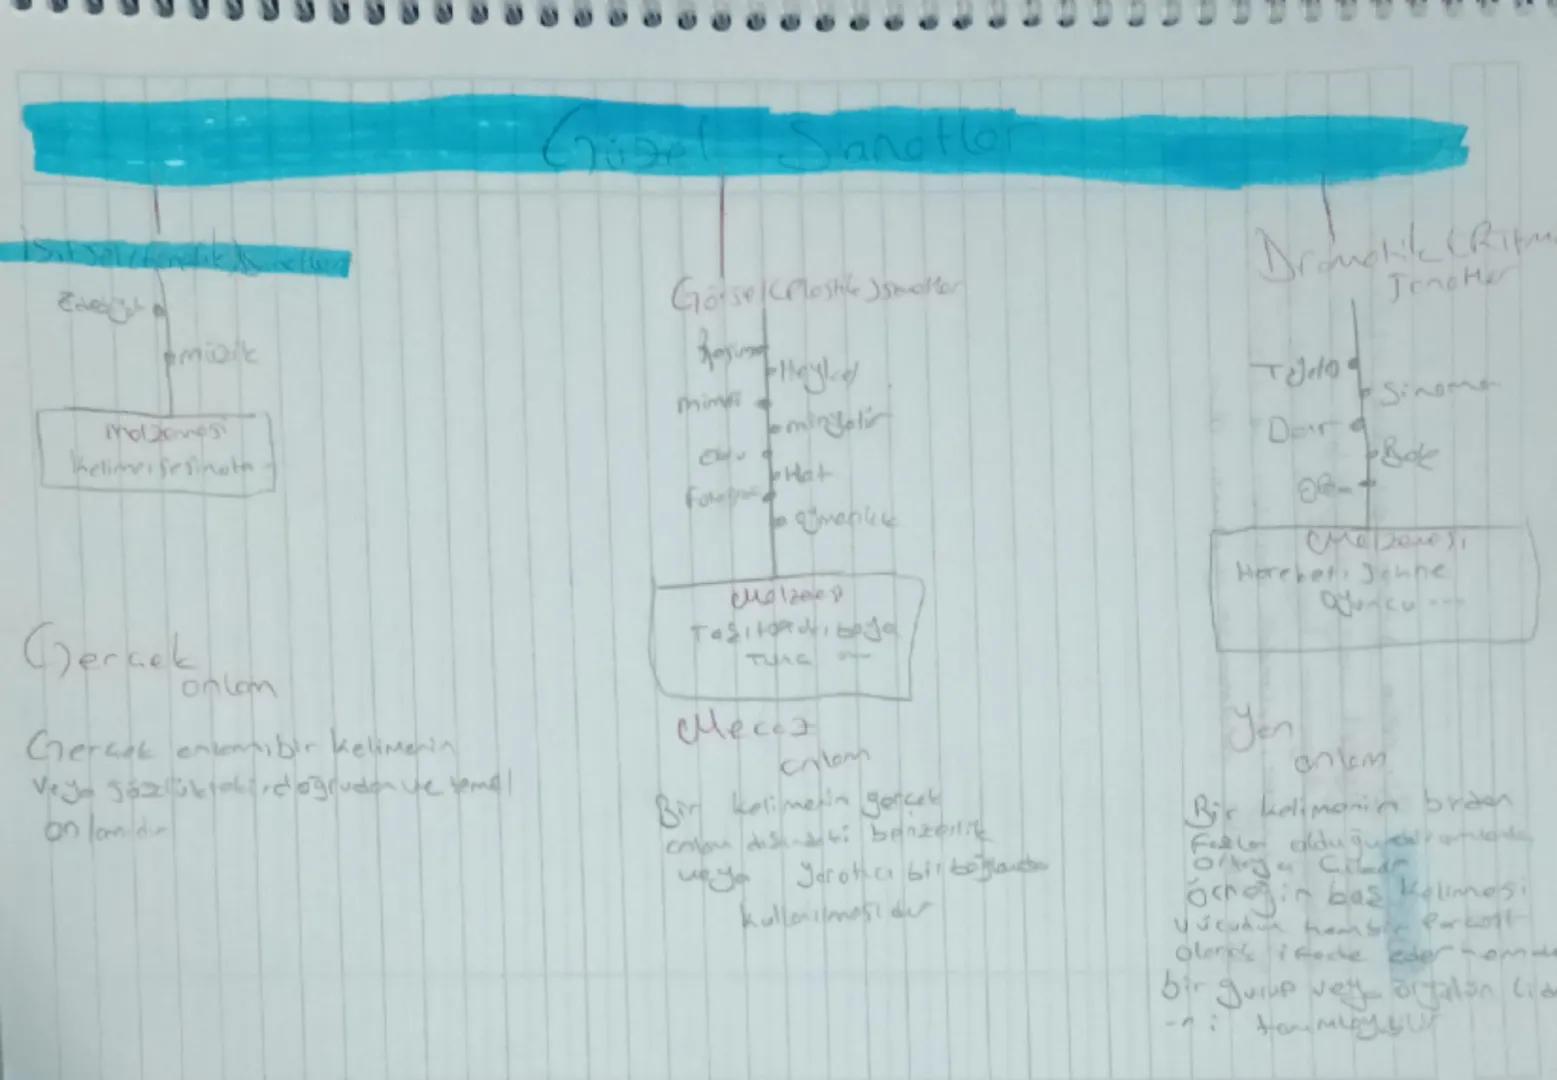 Güzel Sanatlar
İşitsel (Fonetik) Sanatlar
Edebiyat
müzik
Malzemesi
kelime, ses, nota -
Görsel (Plastik) sanatlar
Resim
Heykel
mimari
minyatür
Ebru
Hat
Fotoğraf
oymacılık
Malzemesi
Taş, toprak, boya
Tunç ---
Dramatik (Ritm
Sanatlar
Tiyatro
Sinema
Dans
Bale
Opera
Malzemesi
Hareket, Sahne
Oyuncu ---
Gerçek
anlam
Gerçek anlam, bir kelimenin
veya sözlükteki, doğrudan ve temel
anlamıdır
Mecaz
anlam
Bir kelimenin gerçek
anlam dışındaki benzerlik
veya yaratıcı bir bağlamda
kullanılmasıdır
Yan
anlam
Bir kelimenin birden
Fazla olduğu
Ortaya Çıkan
Örneğin baş kelimesi
vücudun hem bir parçası
olarak ifade eder hemde
bir gurup veya
-ni tanımlayabilir